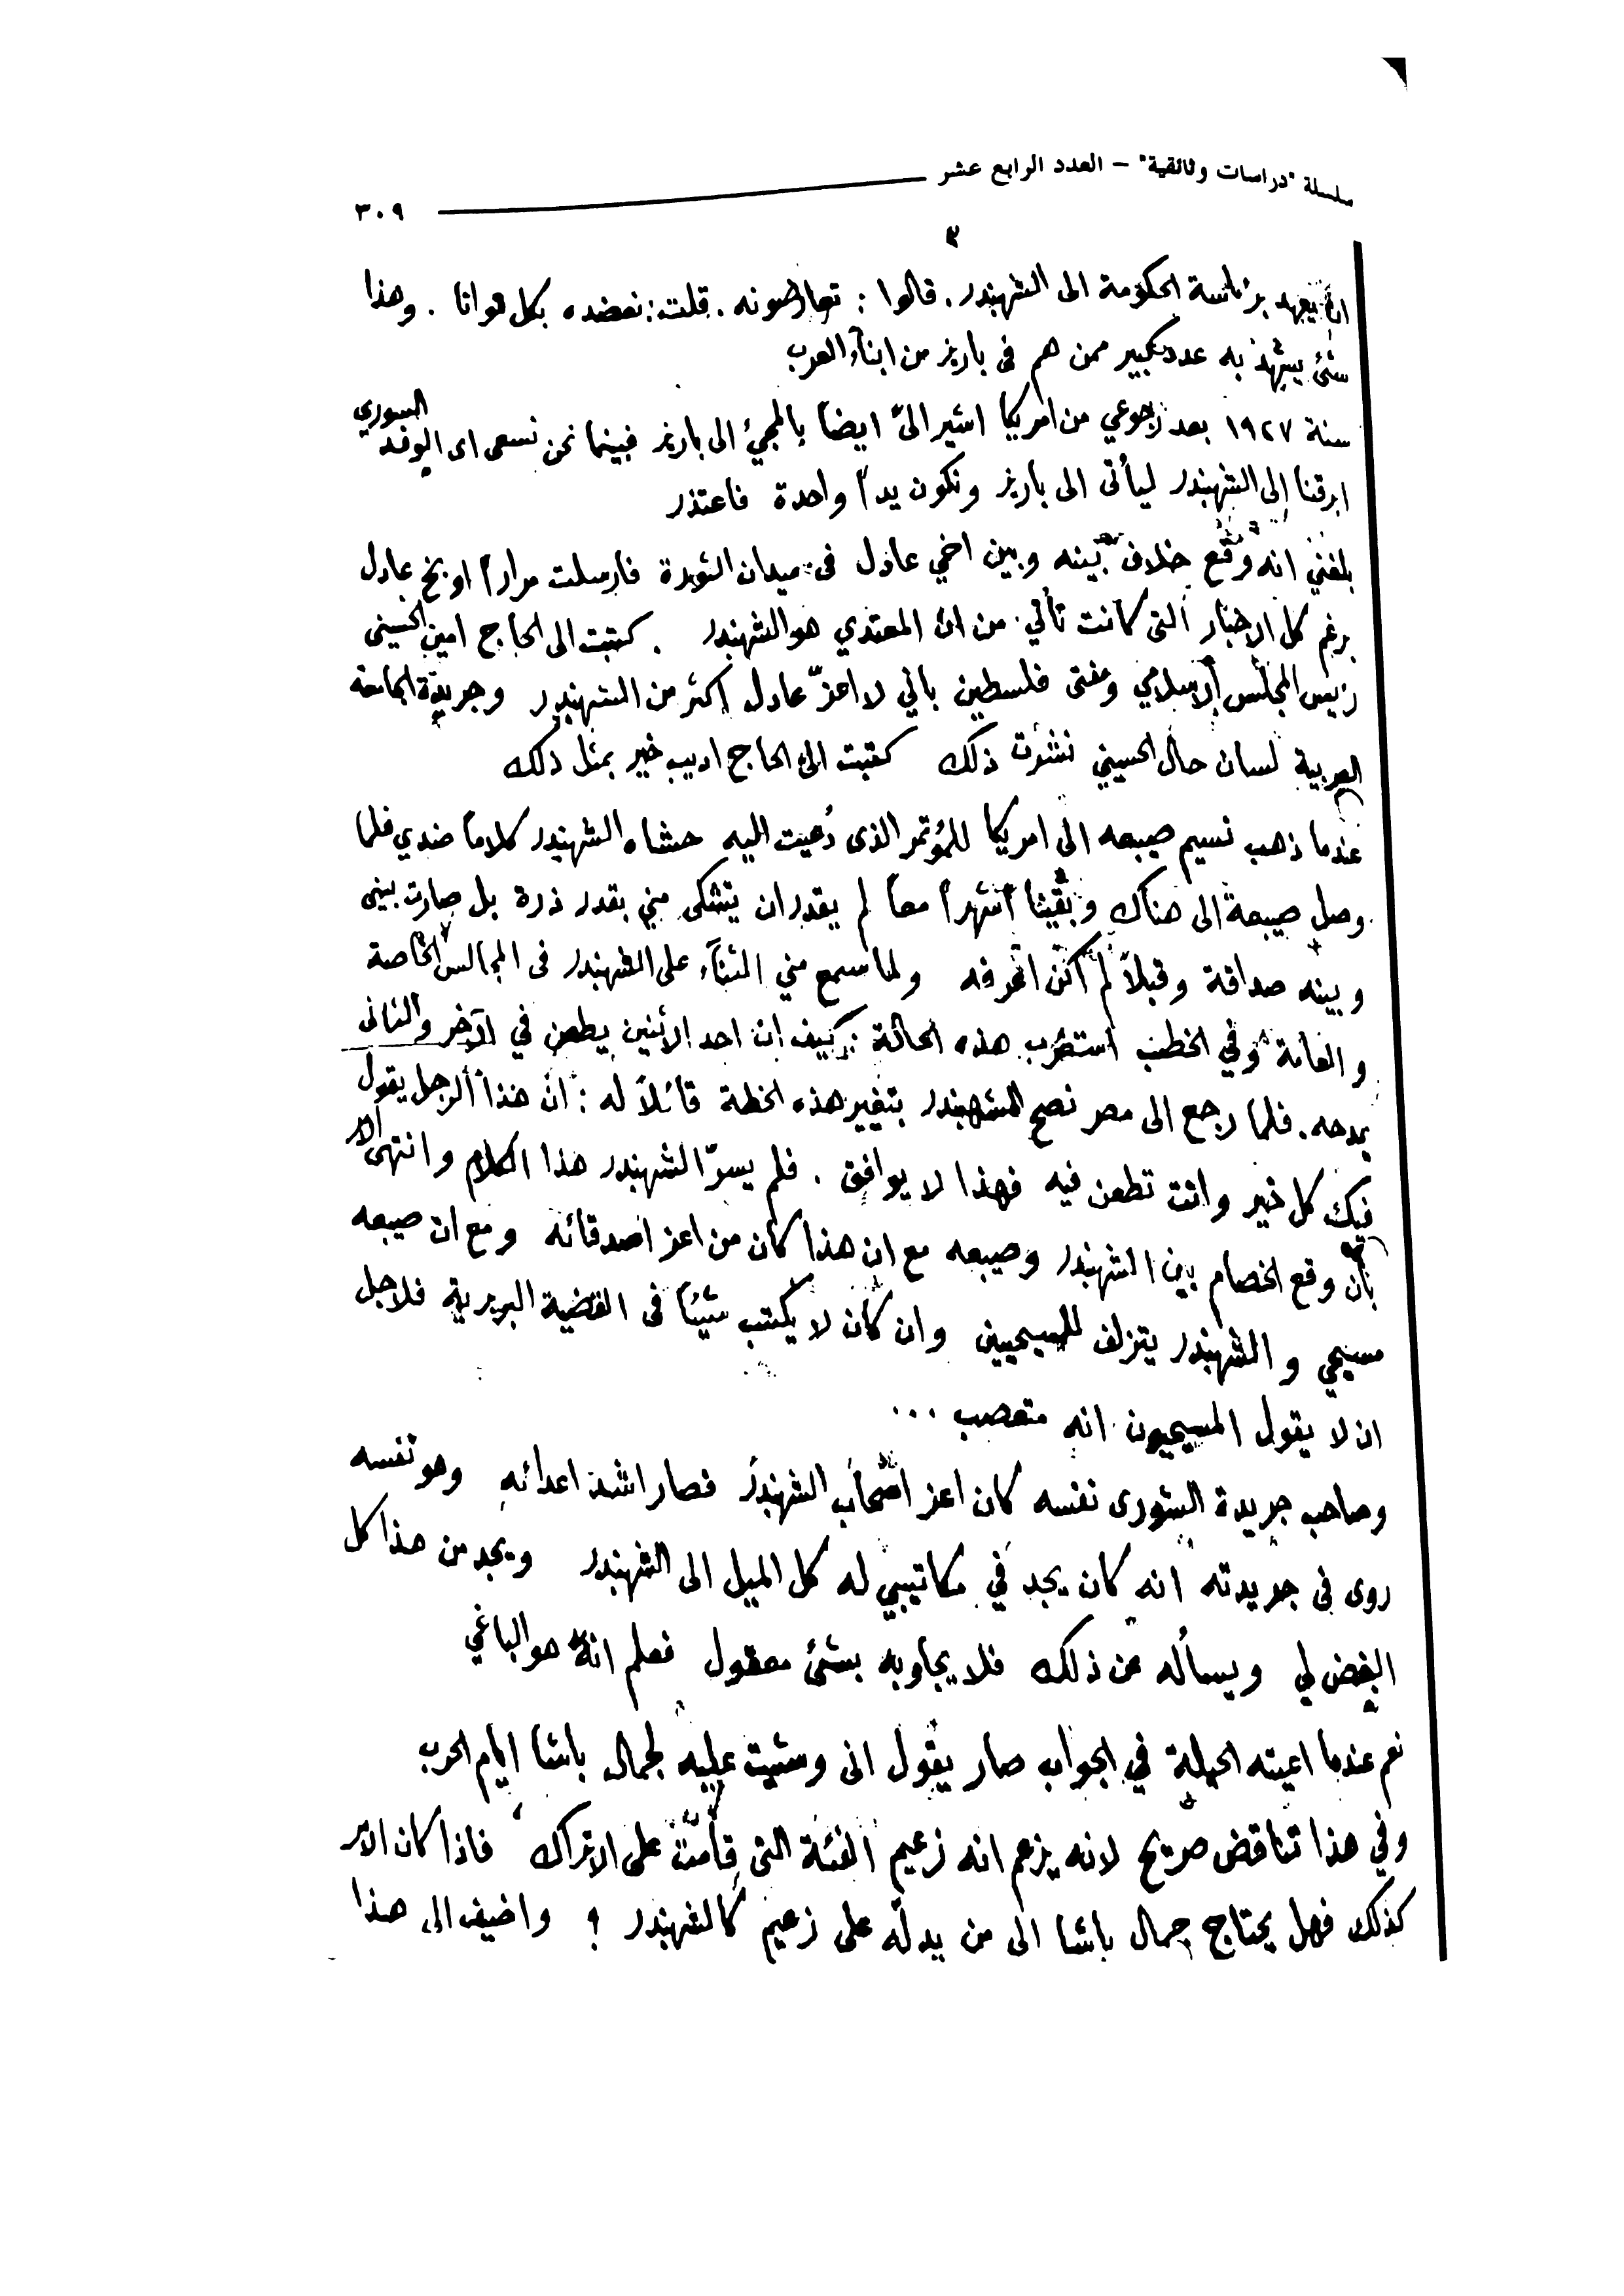 سلسلة "دراسات وثائقية" – العدد الرابع عشر
٣٠٩
٢
ان يعهد برئاسة الحكومة الى الشهبندر. قالوا : تعارضونه . قلت : نعضده بكل قوانا . وهذا
شئ يشهد به عدد كبير ممن هم فى باريز من ابناء العرب
سنة ١٩٢٧ بعد رجوعي من امريكا اشير الىّ ايضاً بالمجيئ الى باريز فبينما نحن نسعى اى الوفد السوري
ابرقنا إلى الشهبندر ليأتى الى باريز ونكون يداً واحدة فاعتذر
بلغني انه وقع خلاف بينه وبين اخي عادل فى ميدان الثورة فارسلت مراراً اوبخ عادل
برغم كل الاخبار التى كانت تأتي من ان المعتدي هو الشهبندر . كتبت الى الحاج امين الحسينى
رئيس المجلس الاسلامي ومفتى فلسطين باني لا اعزّ عادل اكثر من الشهبندر وجريدة الجامعة
العربية لسان حال الحسيني نشرت ذلك كتبت الى الحاج اديب خير بمثل ذلك
عندما ذهب نسيم صيبعه الى امريكا للمؤتمر الذى دُعيت اليه حشاه الشهبندر كلاماً ضدي فلما
وصل صيبعة الى هناك وبقينا اشهراً معاً لم يقدر ان يتشكى مني بقدر ذرة بل صارت بينى
وبينه صداقة وقبلاً لم اكن اعرفه ولما سمع مني الثناء على الشهبندر فى المجالس الخاصة
والعامة وفي الخطب استغرب هذه الحالة : كيف ان احد الاثنين يطعن في الآخر والثانى
يمدحه. فلما رجع الى مصر نصح الشهبندر بتغيير هذه الخطة قائلاً له : ان هذا الرجل يقول
فيك كل خير وانت تطعن فيه فهذا لا يوافق . فلم يسرّ الشهبندر هذا الكلام وانتهى الامر
بأن وقع الخصام بين الشهبندر وصيبعه مع ان هذا كان من اعز اصدقائه ومع ان صيبعه
مسيحي و الشهبندر يتزلف للمسيحيين وان كان لا يكتب شيئاً فى القضية البربرية فلاجل
ان لا يقول المسيحيون انه متعصب ...
وصاحب جريدة الشورى نفسه كان اعز اصحاب الشهبندر فصار اشد اعدائه وهو نفسه
روى فى جريدته انه كان يجد في مكاتيبي له كل الميل الى الشهبندر ويجد من هذا كل
البغض لي ويسأله عن ذلك فلا يجاوبه بشئ معقول فعلم انه هو الباغي
نعم عندما اعيته الحيلة في الجواب صار يقول انى وشيت عليه لجمال باشا ايام الحرب
وفي هذا تناقض صريح لانه يزعم انه زعيم الفئة التى قامت على الاتراك ، فاذا كان الامر
كذلك فهل يحتاج جمال باشا الى من يدله على زعيم كالشهبندر ؟ واضيف الى هذا